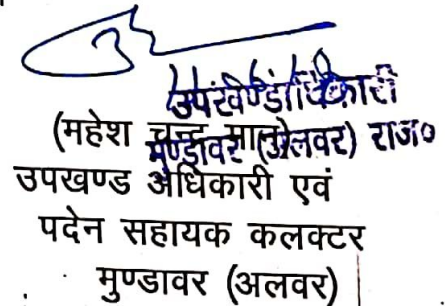 उपखण्डाधिकारी
मुण्डावर (अलवर) राज०
(महेश चन्द
उपखण्ड अधिकारी एवं
पदेन सहायक कलक्टर
मुण्डावर (अलवर)